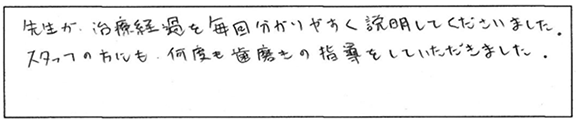 先生が、治療経過を毎回分かりやすく説明してくださいました。
スタッフの方にも、何度も歯磨きの指導をしていただきました。